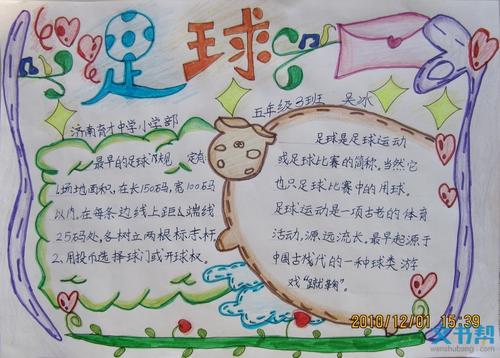 足球
济南育才中学小学部
五年级3班 吴冰
最早的足球门规定有:
1.场地面积,在长150码,宽100码
以内,在每条边线上距&端线
25码处,各树立两根标志杆
2.用投币选择球门或开球权。
足球是足球运动
或足球比赛的简称。当然它
也只足球比赛中的用球。
足球运动是一项古老的体育
活动,源远流长,最早起源于
中国古代的一种球类游
戏“蹴鞠”。
2018/12/01 15:39
文书帮
wenshubang.com